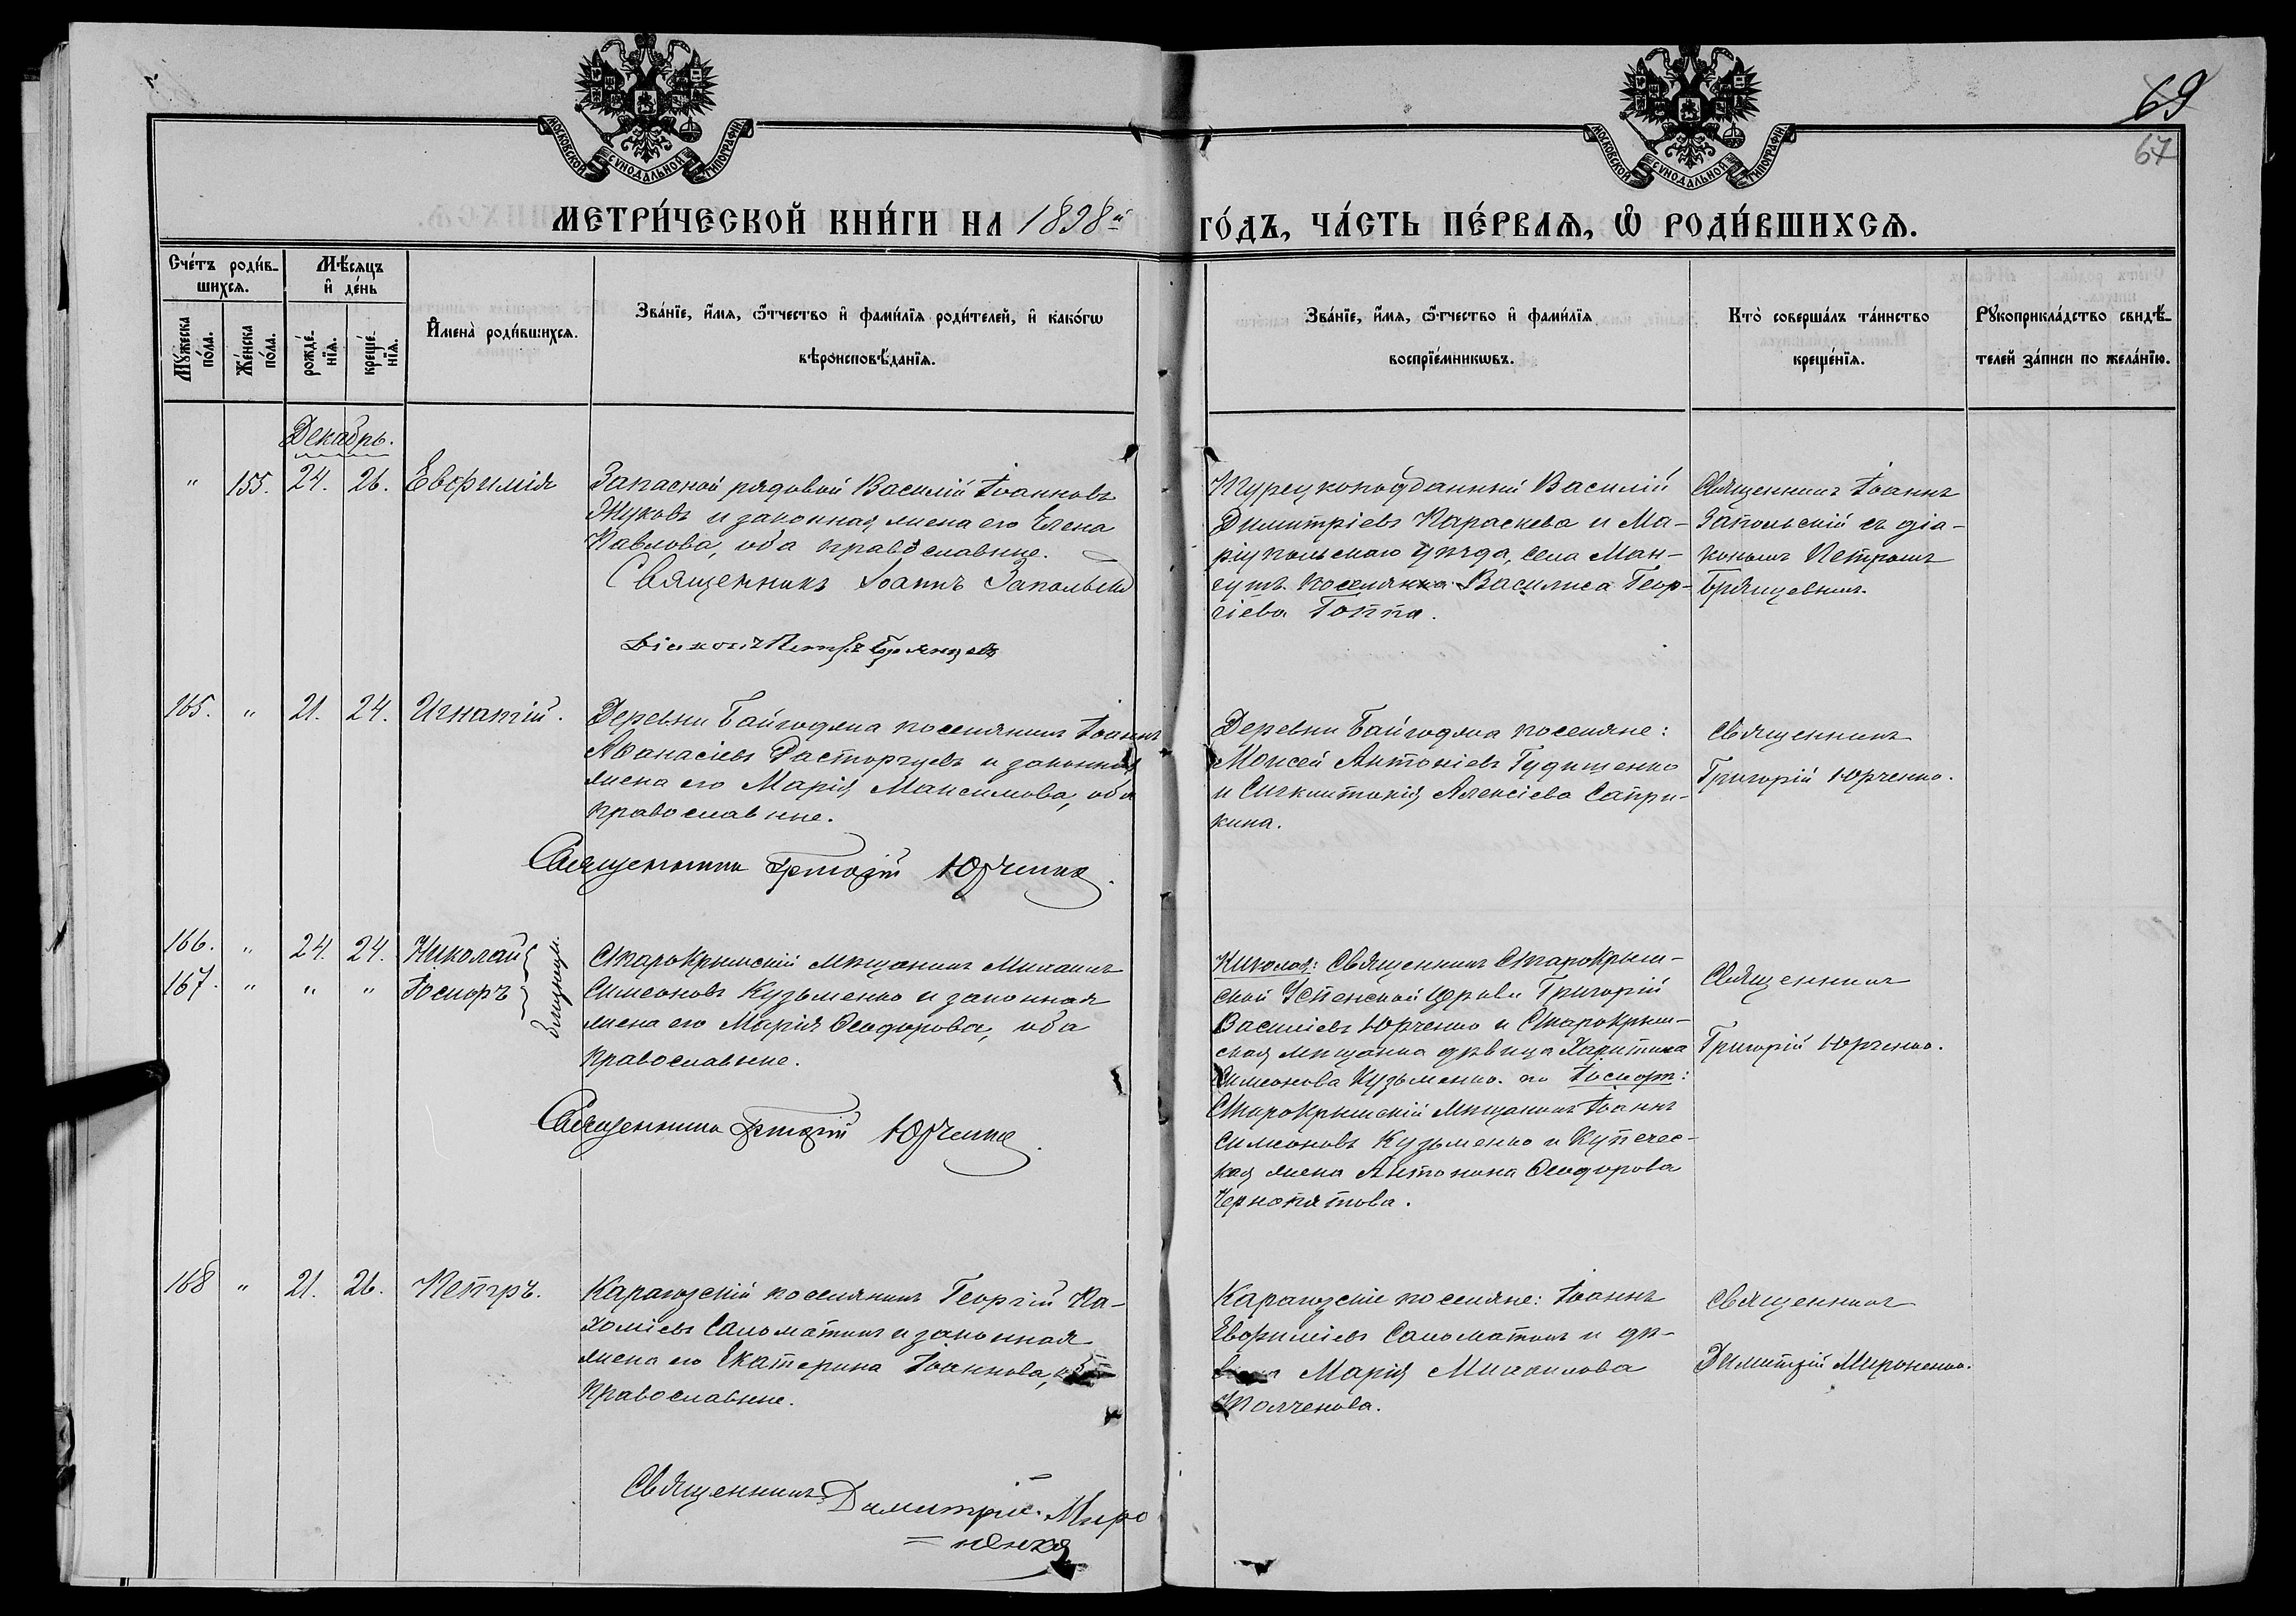 69
67
МОСКОВСКОЙ СУНОДАЛЬНОЙ ТИПОГРАФІИ
МОСКОВСКОЙ СУНОДАЛЬНОЙ ТИПОГРАФІИ
МЕТРИ́ЧЕСКОЙ КНИ́ГИ НА 1898й ГО́ДЪ, ЧА́СТЬ ПЕ́РВАѦ, Ѡ҆ РОДИ́ВШИХСѦ.
Сче́тъ роди́в-
шихсѧ.
Мꙋ́жеска
по́ла.
Же́нска
по́ла.
Мѣ́сѧцъ
и҆ де́нь
рожде́-
нїѧ.
креще́-
нїѧ.
И҆мена̀ роди́вшихсѧ.
Зва́нїе, и҆́мѧ, ѻ҆́тчество и҆ фами́лїѧ роди́телей, и҆ како́гѡ
вѣроисповѣ́данїѧ.
Зва́нїе, и҆́мѧ, ѻ҆́тчество и҆ фами́лїѧ
воспрїе́мникѡвъ.
Кто̀ соверша́лъ та́инство
креще́нїѧ.
Рꙋкоприкла́дство свидѣ́-
телей за́писи по жела́нїю.
Декабрь.
" 155. 24. 26. Евфимія
Запасной рядовой Василій Іоанновъ
Жуковъ и законная жена его Елена
Павлова, оба православные.
Священникъ Іоаннъ Запольскій
Діаконъ Петръ Брянцевъ
Турецкоподданный Василій
Димитріевъ Караскева и Ма-
ріупольскаго уѣзда, села Ман-
гушъ поселянка Василиса Геор-
гіева Топпа.
Священникъ Іоаннъ
Запольскій съ діа-
кономъ Петромъ
Брянцевымъ.
165. " 21. 24. Игнатій.
Деревни Байгоджа поселянинъ Іоаннъ
Аѳанасіевъ Расторгуевъ и законная
жена его Марія Максимова, оба
православные.
Священникъ Григорій Юрченко.
Деревни Байгоджа поселяне:
Моисей Антоніевъ Гудищенко
и Сигклитикія Алексіева Сапри-
кина.
Священникъ
Григорій Юрченко.
166. " 24. 24. Николай
167. " " " Іосифъ
близнецы.
Старокрымскій мѣщанинъ Михаилъ
Симеоновъ Кузьменко и законная
жена его Марія Ѳеодорова, оба
православные.
Священникъ Григорій Юрченко.
Николая: Священникъ Старокрым-
ской Успенской церкви Григорій
Василіевъ Юрченко и Старокрым-
ская мѣщанка дѣвица Харитина
Симеонова Кузьменко.
Старокрымскій мѣщанинъ Іоаннъ
Симеоновъ Кузьменко и купечес-
кая жена Антонина Ѳеодорова
Чернопятова.
Священникъ
Григорій Юрченко.
168 " 21. 26. Петръ.
Карагозскій поселянинъ Георгій Па-
хоміевъ Саломатинъ и законная
жена его Екатерина Іоаннова, оба
православные.
Священникъ Димитрій Миро
=ненко
Карагозскіе поселяне: Іоаннъ
Евфиміевъ Саломатинъ и дѣ-
вица Марія Михаилова
Толченова.
Священникъ
Димитрій Мироненко.